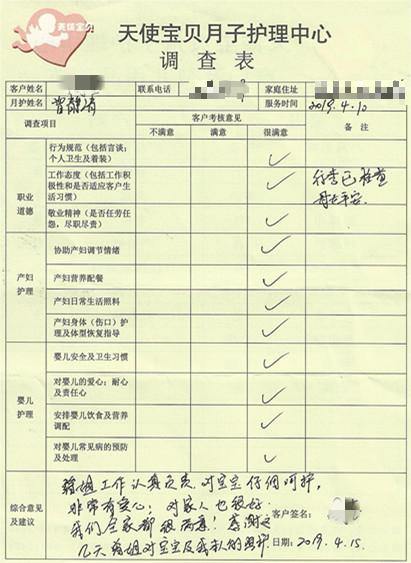 天使宝贝
天使宝贝月子护理中心
调查表
客户姓名 联系电话 家庭住址
月护姓名 曾静清 服务时间 2019.4.10
调查项目 客户考核意见 备 注
不满意 满意 很满意
职业道德
行为规范（包括言谈；个人卫生及着装）
工作态度（包括工作积极性和是否适应客户生活习惯） 行李已检查
母子平安
敬业精神（是否任劳任怨，尽职尽责）
产妇护理
协助产妇调节情绪
产妇营养配餐
产妇日常生活照料
产妇身体（伤口）护理及体型恢复指导
婴儿护理
婴儿安全及卫生习惯
对婴儿的爱心；耐心及责任心
安排婴儿饮食及营养调配
对婴儿常见病的预防及处理
综合意见及建议
姐工作认真负责，对宝宝仔细呵护，
非常有爱心，对家人也很好。
我们全家都很满意！感谢这 客户签名：
几天 姐对宝宝及我 的照护 日期：2019.4.15.